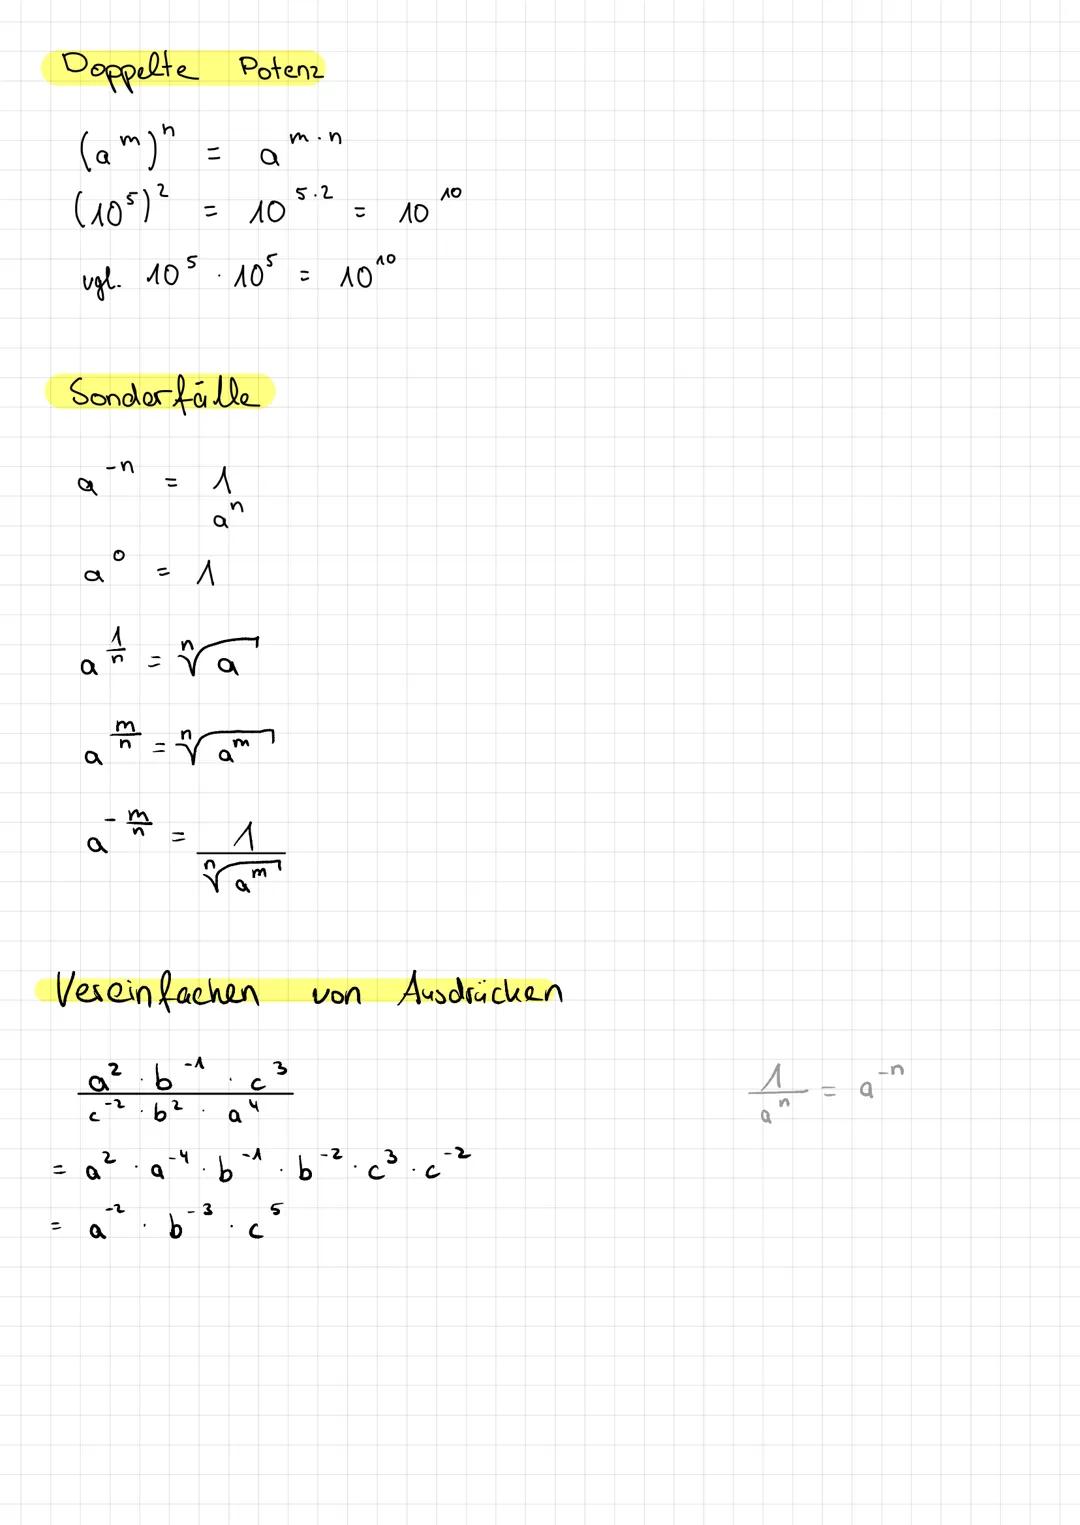 Doppelte Potenz
(a^m)^n = a^(m·n)
(10^5)^2 = 10^(5·2) = 10^10
vgl. 10^5 · 10^5 = 10^10
Sonderfälle
a^(-n) = 1
a^n
a^0 = 1
a^(1/n) = ⁿ√a
a^(m/n) = ⁿ√(a^m)
a^(-m/n) = 1/ⁿ√(a^m)
Vereinfachen von Ausdrücken
(a^2 · b^(-1) · c^3)/(c^(-2) · b^2 · a^4)
1/a^n = a^(-n)
= a^2 · a^(-4) · b^(-1) · b^(-2) · c^3 · c^(-2)
= a^(-2) · b^(-3) · c^5